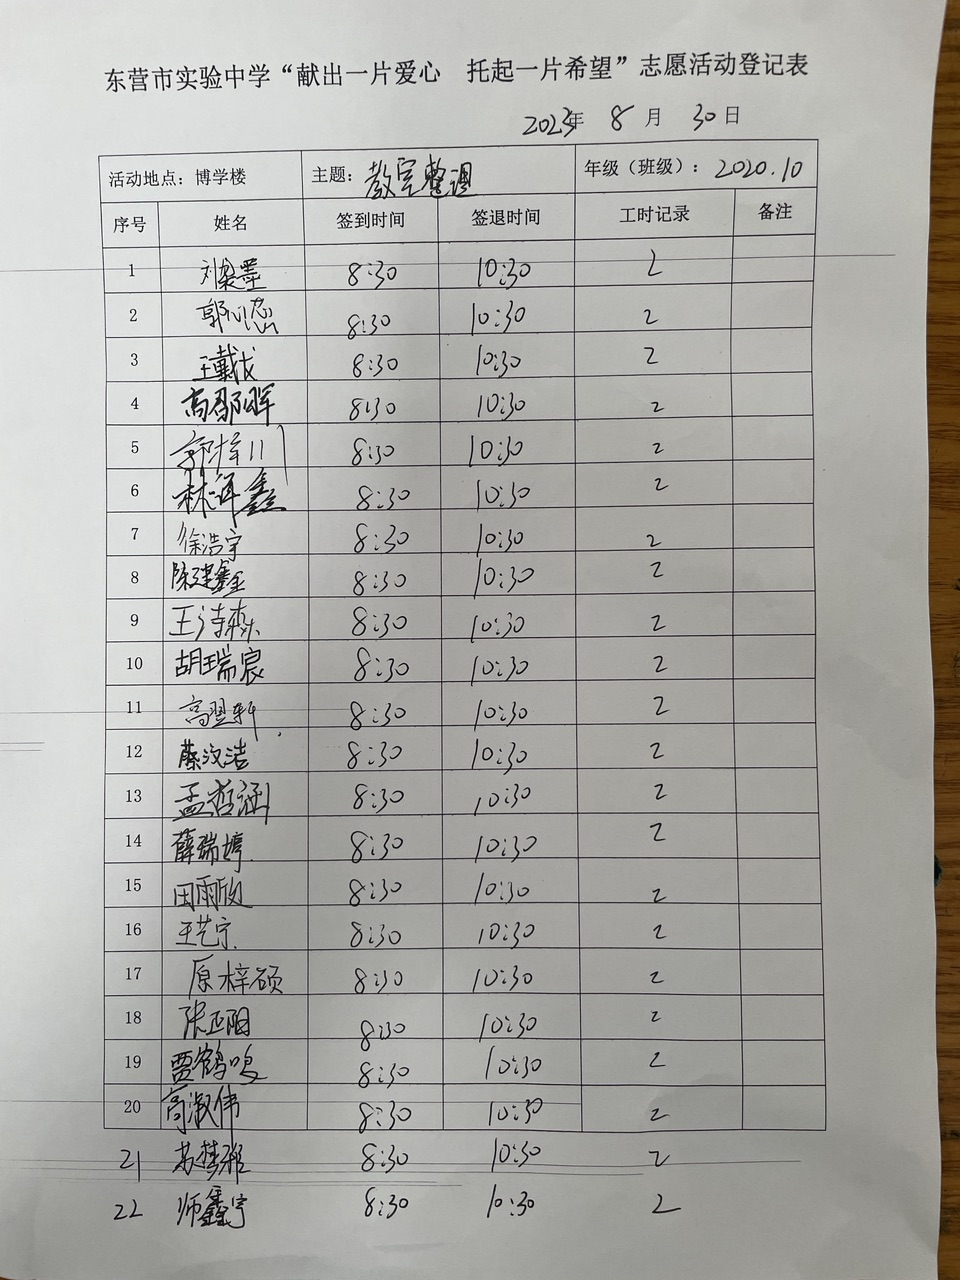 东营市实验中学“献出一片爱心 托起一片希望”志愿活动登记表
2023年 8 月 30 日
活动地点：博学楼 主题：教室整理 年级（班级）：2020.10
序号 姓名 签到时间 签退时间 工时记录 备注
1 刘梁墨 8:30 10:30 2
2 郭沁 8:30 10:30 2
3 王戴 8:30 10:30 2
4 高邵晖 8:30 10:30 2
5 郭梓川 8:30 10:30 2
6 林泽鑫 8:30 10:30 2
7 徐浩宇 8:30 10:30 2
8 陈建鑫 8:30 10:30 2
9 王诗森 8:30 10:30 2
10 胡瑞宸 8:30 10:30 2
11 高翌轩 8:30 10:30 2
12 蔡汶洁 8:30 10:30 2
13 孟哲涵 8:30 10:30 2
14 薛瑞婷 8:30 10:30 2
15 田雨欣 8:30 10:30 2
16 王艺宁 8:30 10:30 2
17 原梓硕 8:30 10:30 2
18 张正阳 8:30 10:30 2
19 贾鹤鸣 8:30 10:30 2
20 高淑伟 8:30 10:30 2
21 苏梦雅 8:30 10:30 2
22 师鑫宇 8:30 10:30 2